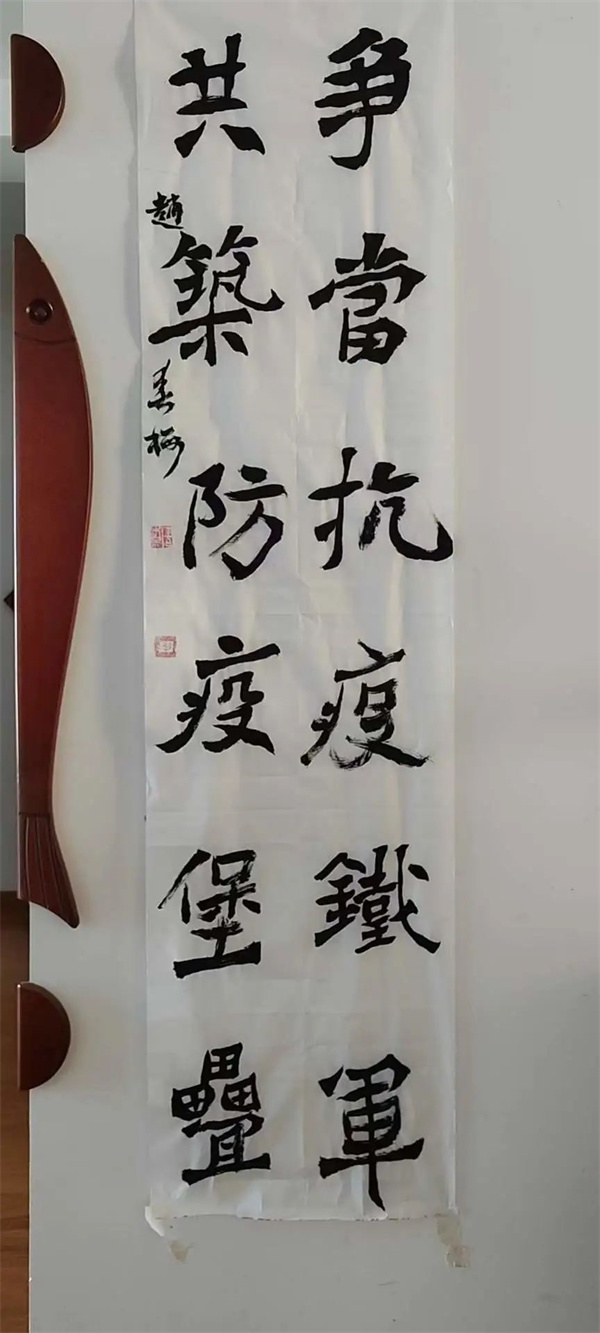 爭當抗疫鐵軍
共築防疫堡疊
趙春梅